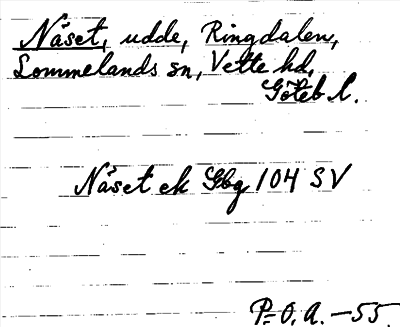 Näset, udde, Ringdalen,
Lommelands sn, Vette hd,
Göteb l.
Näset ek Gbg 104 SV
P=O, A. -55.